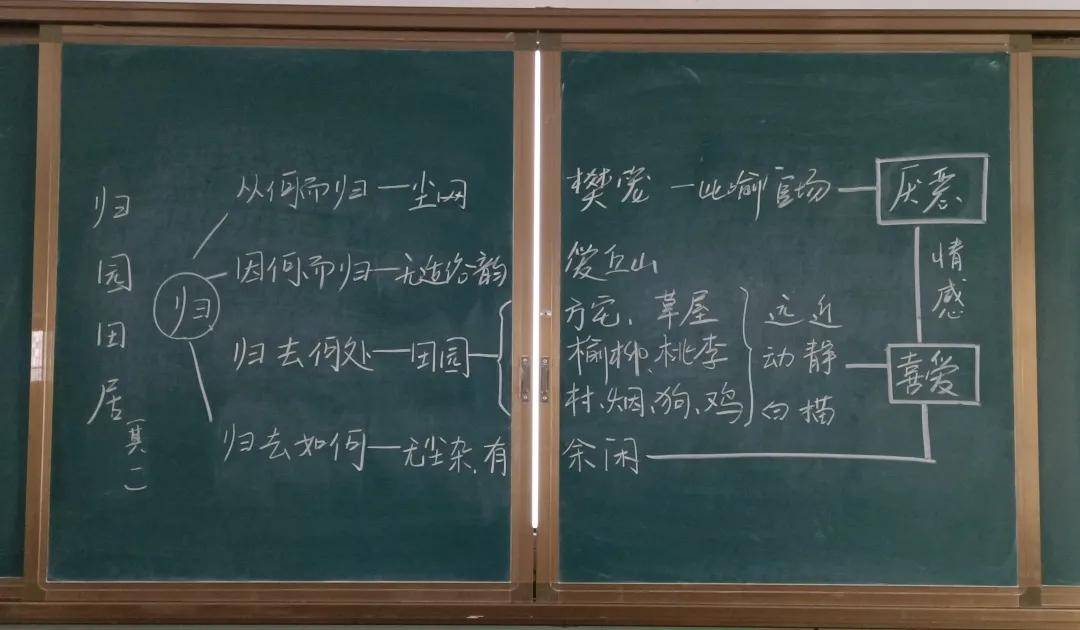 归园田居(其一)
归
从何而归—尘网 樊笼—比喻官场—厌恶
因何而归—无适俗韵 爱丘山
情感
归去何处—田园—方宅、草屋
榆柳、桃李
村、烟、狗、鸡
远近
动静
白描
喜爱
归去如何—无尘杂、有余闲